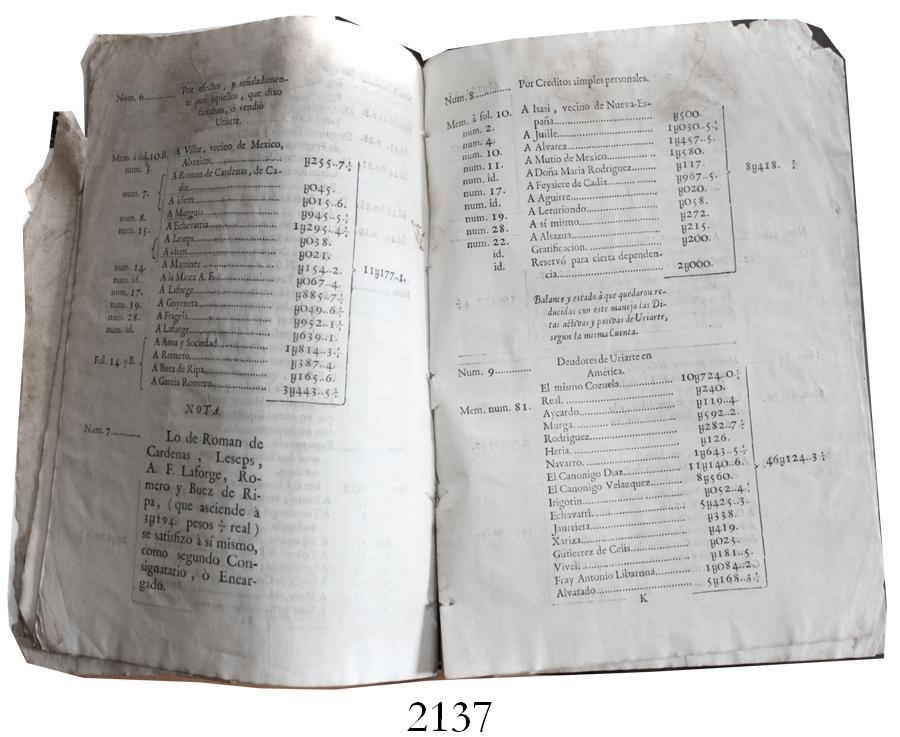 Num. 6............ Por efectos, y señaladamen-
te por aquellos, que dixo
faltaban, ò vendiò
Uriarte.
Mem. à fol. 10. B. A Villar, vecino de Mexico,
num. 3. Abanicos............ U255..7.½
A Roman de Cardenas, de Ca-
num. 7. diz............ U045.
A idem............ U015..6.
num. 8. A Murguia............ U945..5.½
num. 15. A Echevarria............ 1U295..4½
A Leseps............ U038.
A idem............ U021.
num. 14. A Martinez............ U154..2.
num. id. A la Marca A. F............ U067..4.
num. 17. A Laforge............ U885..7.½
num. 19. A Goyeneta............ U049..6½
num. 28. A Fragela............ U952..1½
num. id. A Laforge............ U639..1.
A Ama y Sociedad............ 1U814..3.½
Fol. 14 y B. A Romero............ U387..4.
A Buez de Ripa............ U165..6.
A Garcia Romero............ 3U443..5½
11U177..1.
NOTA.
Num. 7............ Lo de Roman de
Cardenas, Leseps,
A. F. Laforge, Ro-
mero y Buez de Ri-
pa, (que asciende à
3U194. pesos ½ real)
se satisfizo à sí mismo,
como segundo Con-
signatario, ò Encar-
gado.
Num. 8............ Por Creditos simples personales.
Mem. à fol. 10. A Isasi, vecino de Nueva-Es-
num. 2. paña............ U500.
num. 4. A Juille............ 1U030..5.½
num. 10. A Alvarez............ 1U457..5½
num. 11. A Mutio de Mexico............ 1U580.
num. id. A Doña Maria Rodriguez............ U117.
num. 17. A Feysiere de Cadiz............ U967..5.
num. id. A Aguirre............ U020.
num. 19. A Leturiondo............ U058.
num. 28. A sí mismo............ U272.
num. 22. A Alsazua............ U215.
id. Gratificacion............ U200.
id. Reservó para cierta dependen-
cia............ 2U000.
8U418. ½
Balance y estado à que quedaron re-
ducidas con este manejo las Di-
tas activas y pasivas de Uriarte,
segun la misma Cuenta.
Num. 9............ Deudores de Uriarte en
América.
El mismo Cozuela............ 10U724..0.½
Mem. num. 81. Real............ U240.
Aycardo............ U119..4.
Murga............ U592..2.
Rodriguez............ U282..7.½
Heria............ U126.
Navarro............ 1U643..5.½
El Canonigo Diaz............ 11U140..6.
El Canonigo Velazquez............ 8U560.
Irigorin............ U052..4.½
Echavarri............ 5U425..3.
Jaurrieta............ U338.
Xariza............ U419.
Gutierrez de Celis............ U025.
Viveli............ U181..5.
Fray Antonio Libarona............ 1U084..2.
Alvarado............ 5U168..3.½
46U124..3½
K
2137